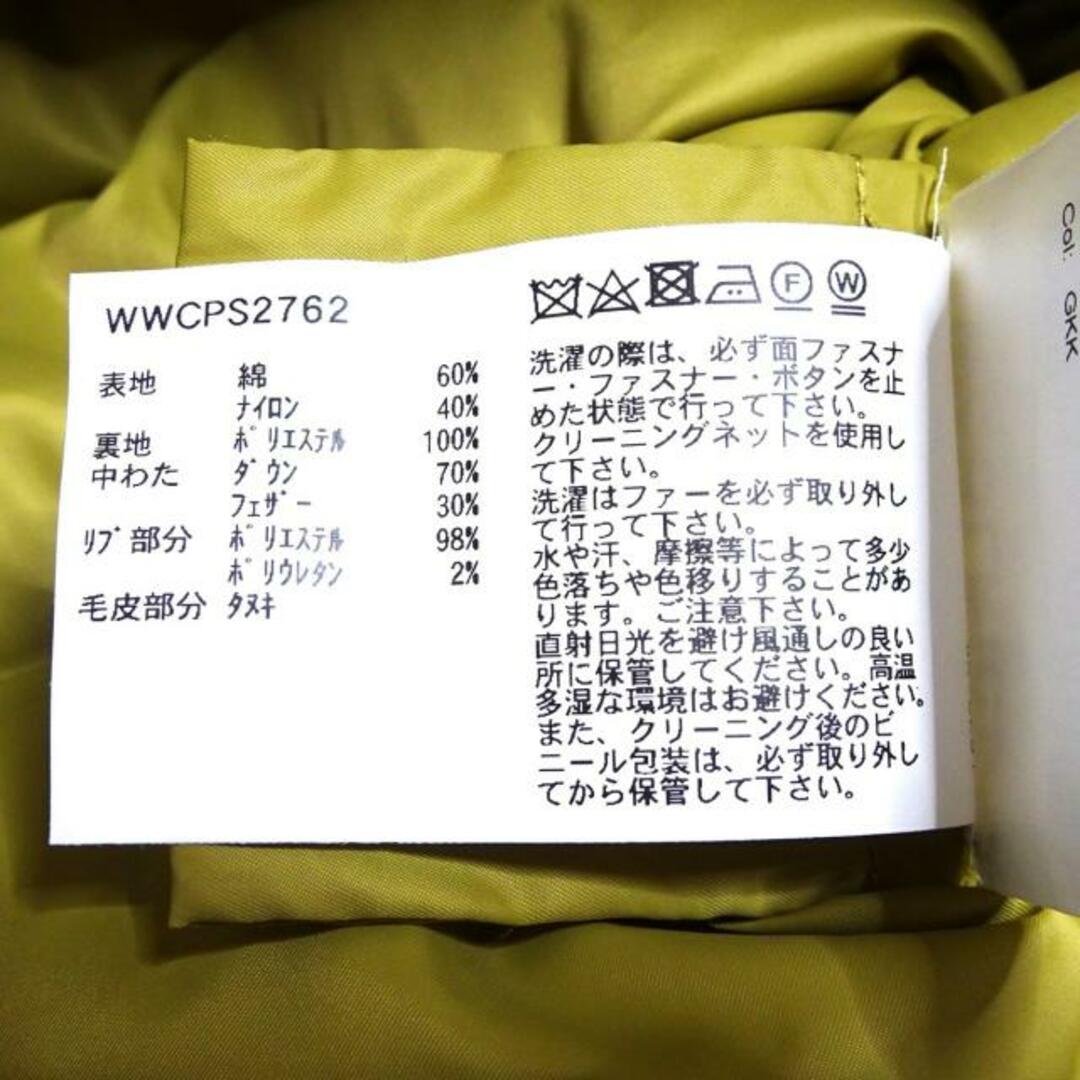 WWCPS2762
表地 綿 60%
ナイロン 40%
裏地 ポリエステル 100%
中わた ダウン 70%
フェザー 30%
リブ部分 ポリエステル 98%
ポリウレタン 2%
毛皮部分 タヌキ
F W
洗濯の際は、必ず面ファスナ
ー・ファスナー・ボタンを止
めた状態で行って下さい。
クリーニングネットを使用し
て下さい。
洗濯はファーを必ず取り外し
て行って下さい。
水や汗、摩擦等によって多少
色落ちや色移りすることがあ
ります。ご注意下さい。
直射日光を避け風通しの良い
所に保管してください。高温
多湿な環境はお避けください。
また、クリーニング後のビ
ニール包装は、必ず取り外し
てから保管して下さい。
Col: GKK